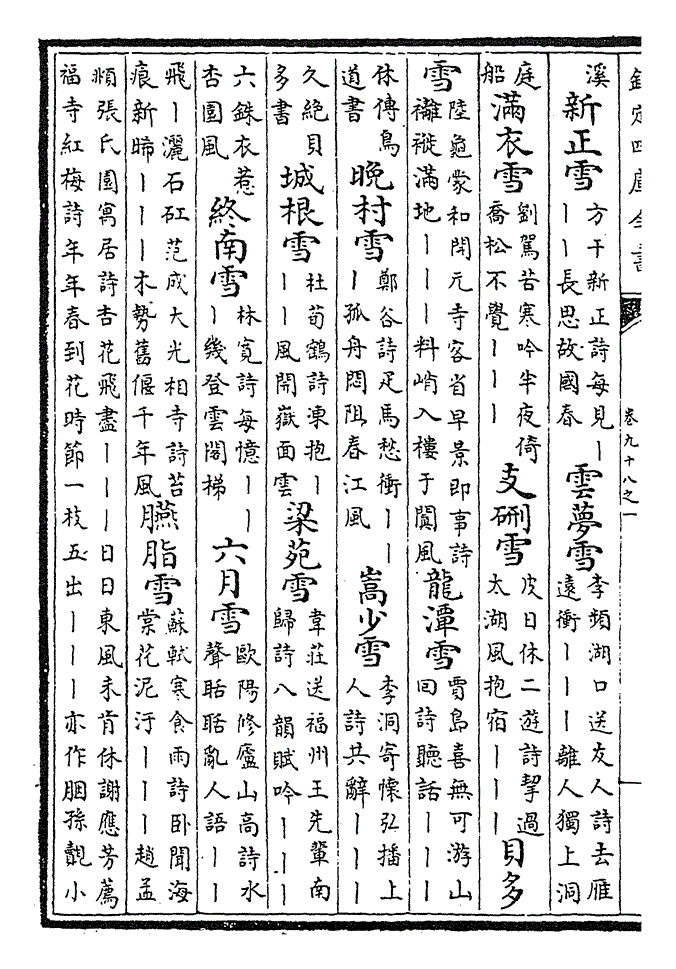 欽定四庫全書 卷九十八之一
溪 新正雪 方干新正詩每見丨丨丨長思故國春 雲夢雪 李頻湖口送友人詩去雁遠衝丨丨丨離人獨上洞
庭船 滿衣雪 劉駕苦寒吟半夜倚喬松不覺丨丨丨 支硎雪 皮日休二遊詩挈過太湖風抱宿丨丨丨 貝多
雪 陸龜蒙和開元寺客省早景即事詩褵褷滿地丨丨丨料峭入樓于闐風 龍潭雪 賈島喜無可游山回詩聽話丨丨丨
休傳鳥道書 晚村雪 鄭谷詩疋馬愁衝丨丨丨孤舟悶阻春江風 嵩少雪 李洞寄懷弘播上人詩共辭丨丨丨
久絕貝多書 城根雪 杜荀鶴詩凍抱丨丨丨風開嶽面雲 梁苑雪 韋莊送福州王先輩南歸詩八韻賦吟丨丨丨
六銖衣惹杏園風 終南雪 林寬詩每憶丨丨丨幾登雲閣梯 六月雪 歐陽修廬山高詩水聲聒聒亂人語丨丨
飛丨灑石矼范成大光相寺詩苔痕新晞丨丨丨木勢舊偃千年風 臙脂雪 蘇軾寒食雨詩卧聞海棠花泥汙丨丨丨趙孟
頫張氏園寓居詩杏花飛盡丨丨丨日日東風未肯休謝應芳薦福寺紅梅詩年年春到花時節一枝五出丨丨丨亦作胭孫覿小